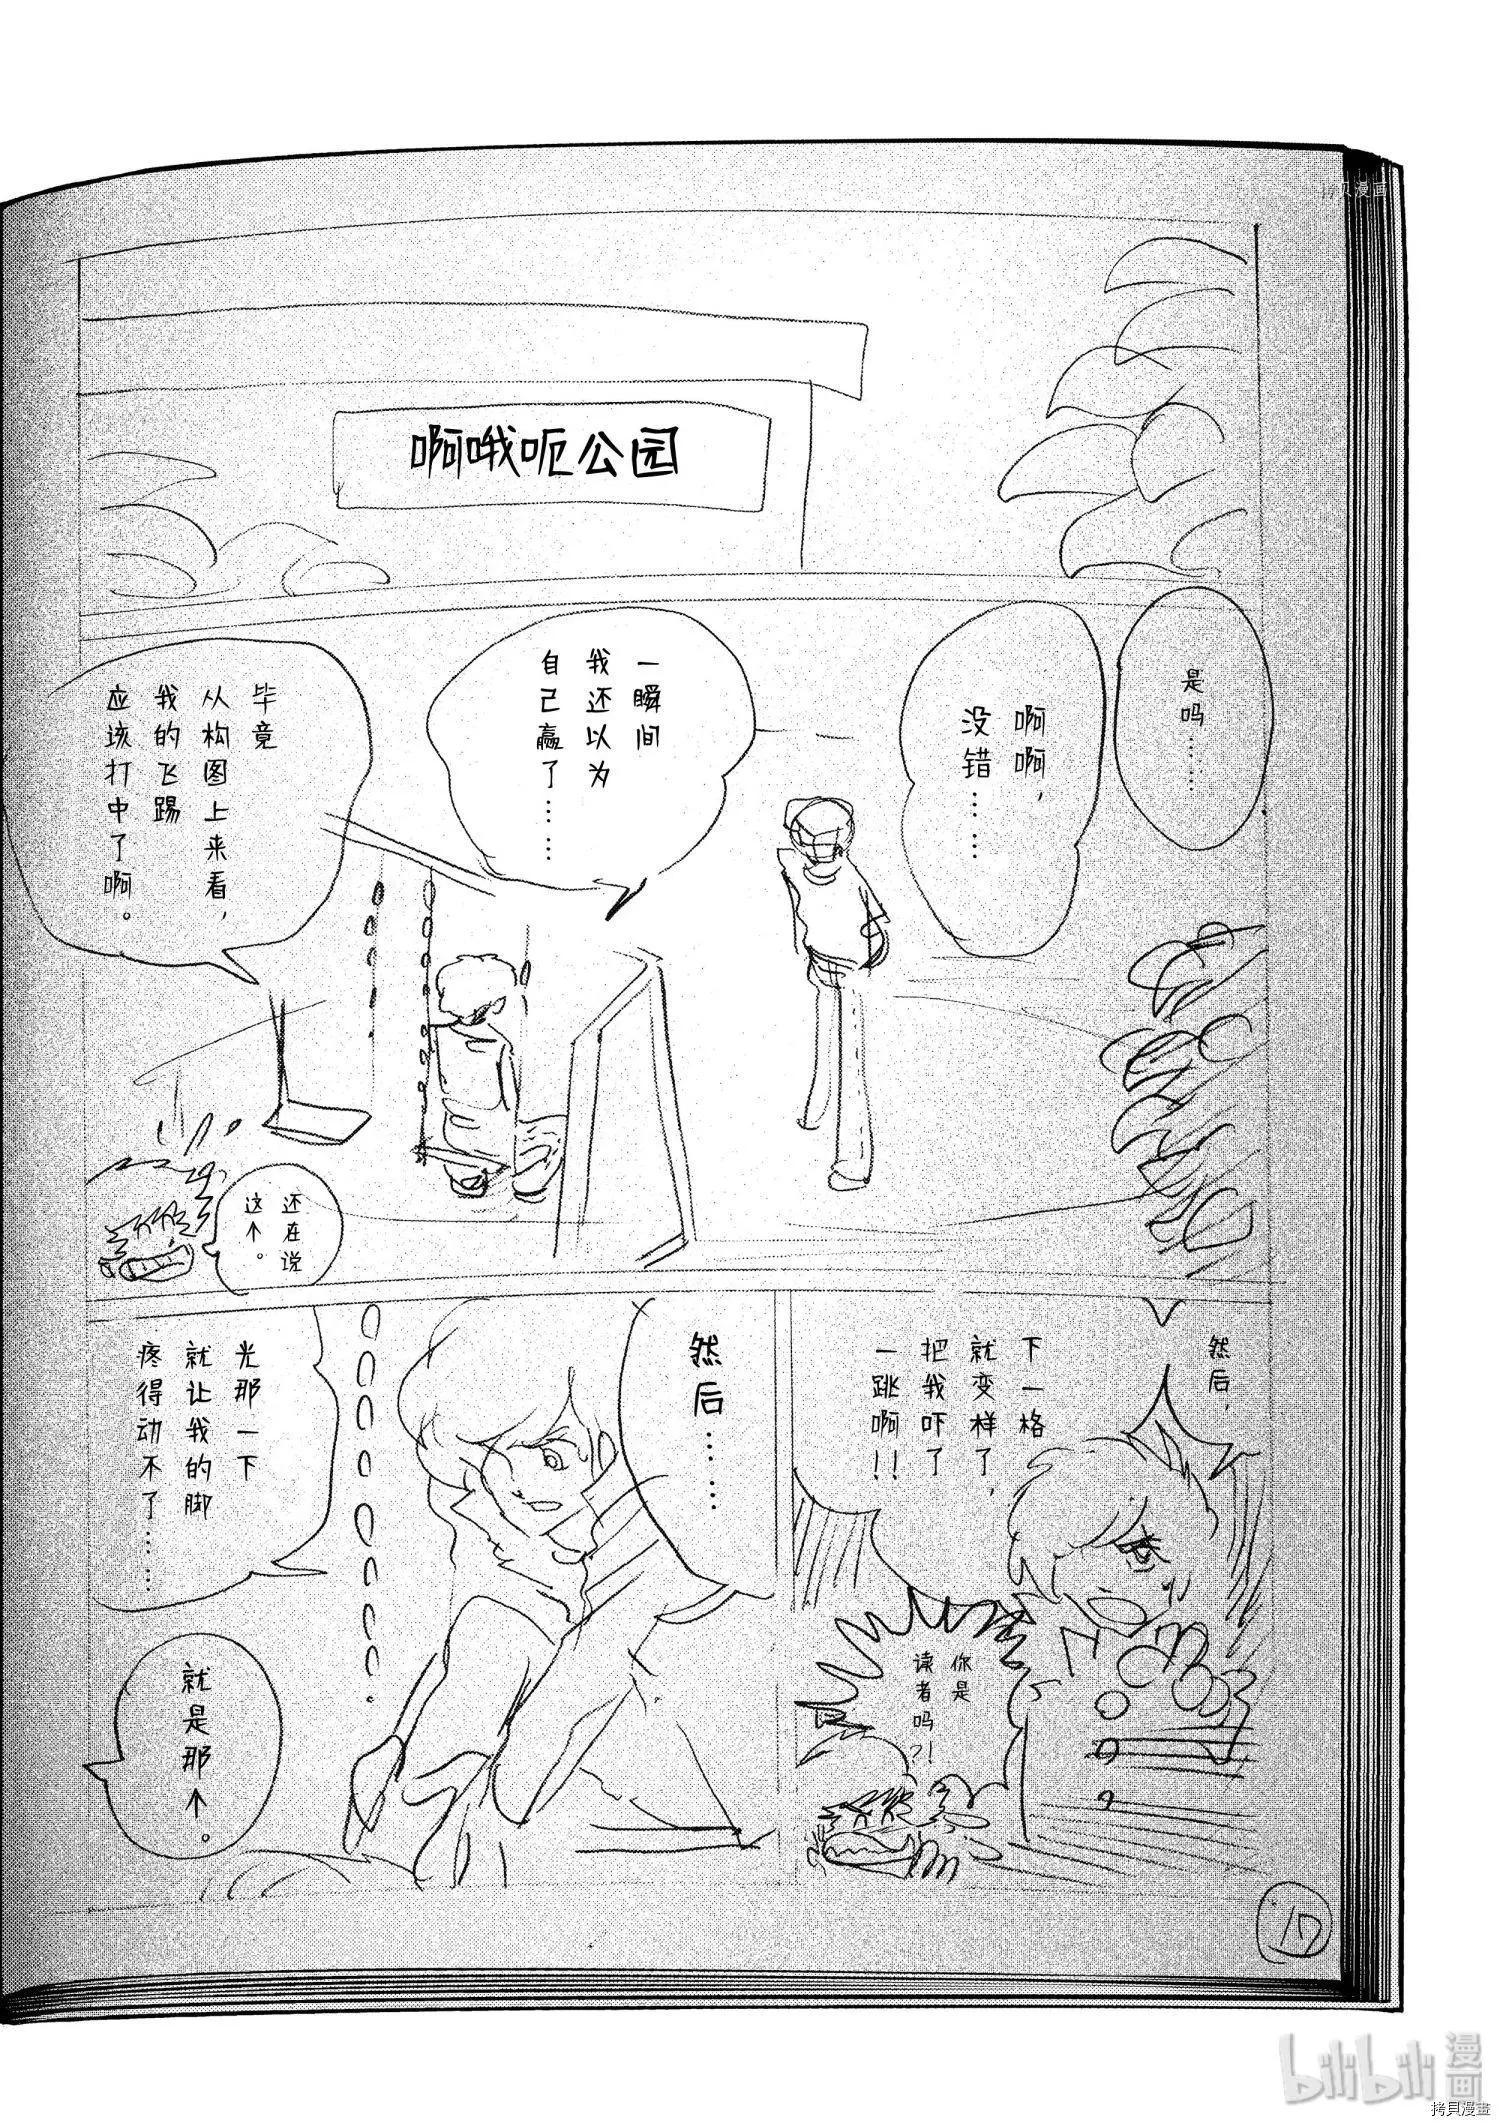 拷贝漫画
啊哦呃公园
是吗……
啊啊，
没错……
一瞬间
我还以为
自己赢了……
毕竟
从构图上来看，
我的飞踢
应该打中了啊。
还在说
这个。
然后，
下一格
就变样了，
把我吓了
一跳啊!!
你是
读者吗?!
然后……
光那一下
就让我的脚
疼得动不了……
就是那个。
17
bilibili
漫画
拷貝漫畫